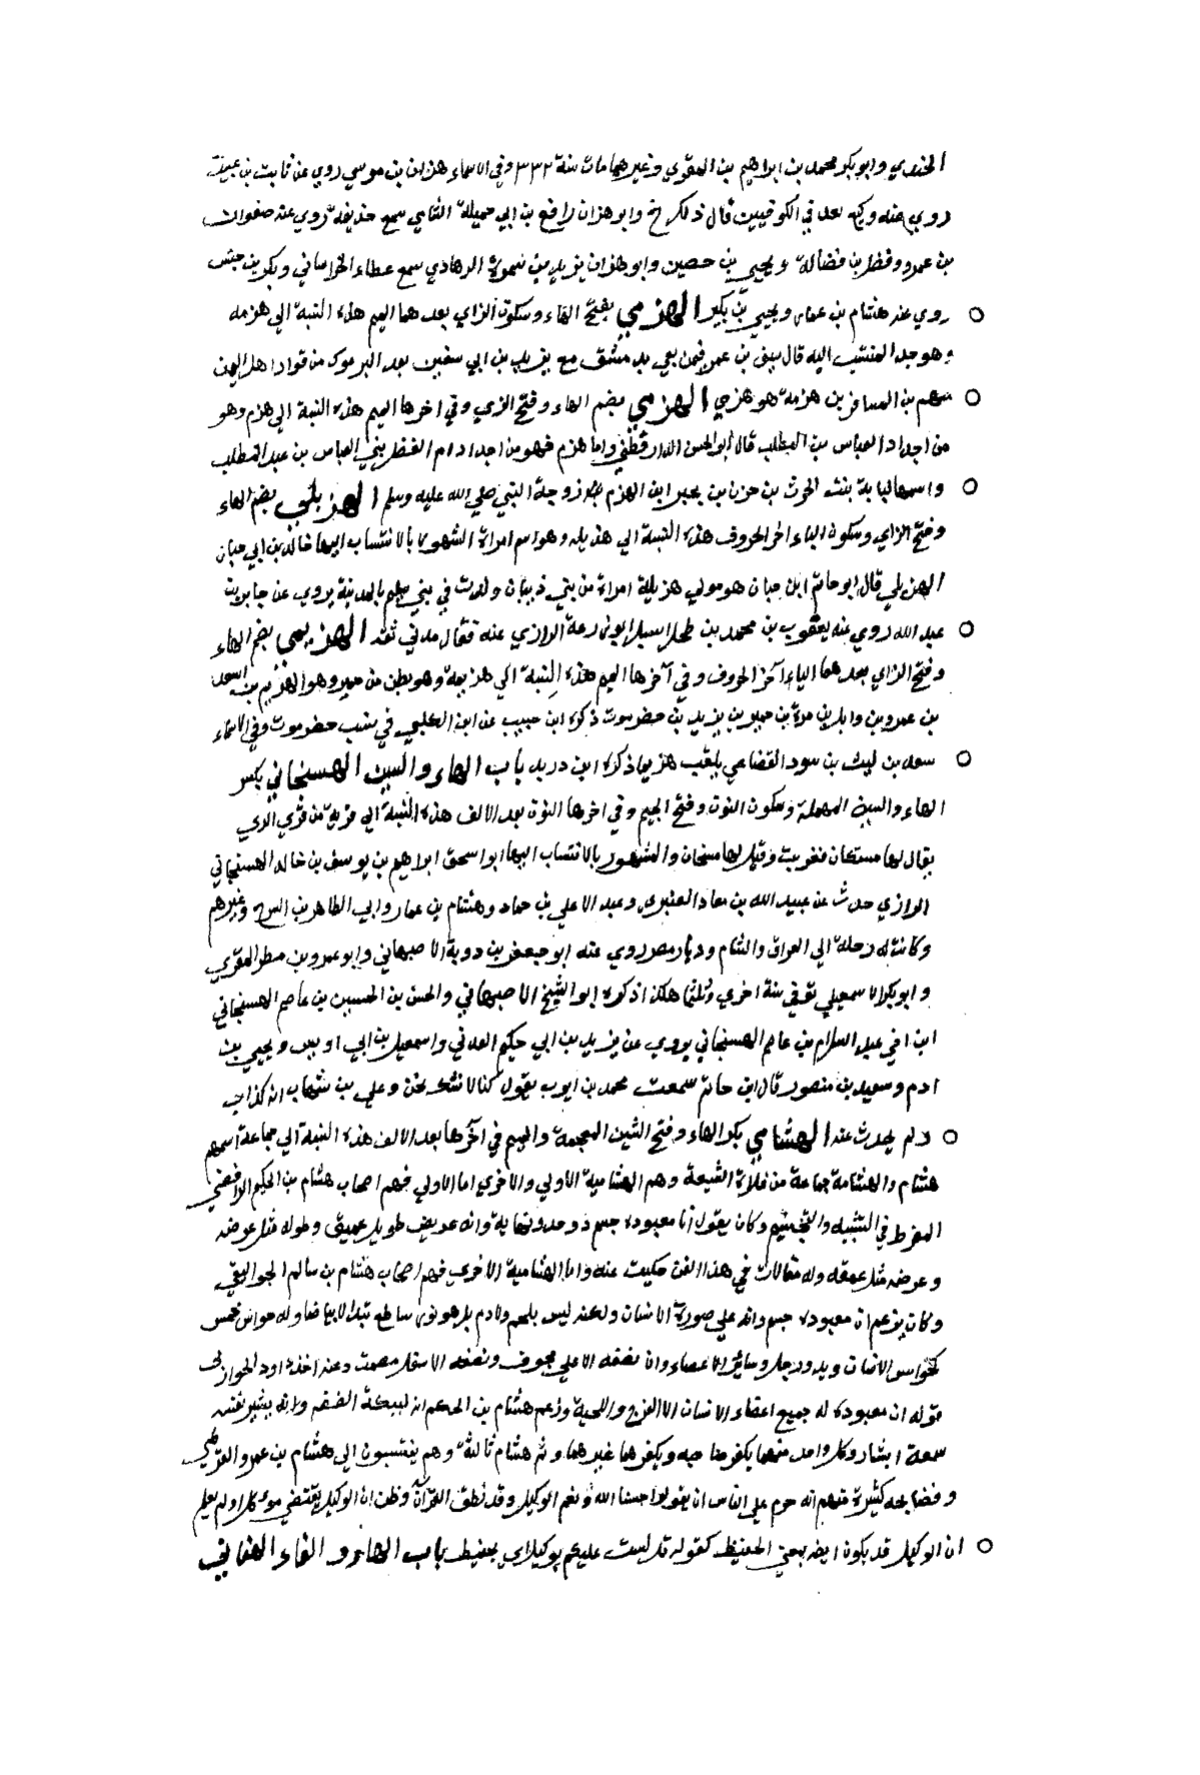 الجندي وابو بكر محمد بن ابراهيم بن المقري وغيرهما مات سنة ٣٣٢ وفي الاسماء هزان بن موسي روي عن ثابت بن عبيد
روي عنه وكيع بعد في الكوفيين قال ذلك خ وابو هزان رافع بن ابي جميلة الشامي سمع حذيفة روي عنه صفوان
بن عمرو وفضل بن فضالة ويحيي بن حصين وابو هزان يزيد بن سمرة الرهاوي سمع عطاء الخراساني وبكر بن خنيس
روي عنه هشام بن عمار ويحيي بن بكير الهزمي بفتح الهاء وسكون الزاي بعدهما الميم هذه النسبة الي هزمه
وهو جد المنتسب اليه قال سيف بن عمر فيمن بقي بدمشق مع يزيد بن ابي سفين بعد اليرموك من قواد اهل اليمن
سهم بن المسافر بن هزمة هو هزمي الهزمي بضم الهاء وفتح الزي وفي اخرها الميم هذه النسبة الي هزم وهو
من اجداد العباس بن المطلب قال ابو الحسن الدارقطني واما هزم فهو من اجداد ام الفضل بني العباس بن عبد المطلب
واسمها لبابة بنت الحرث بن حزن بن بجير ابن الهزم زوجة النبي صلي الله عليه وسلم الهزيلي بضم الهاء
وفتح الزاي وسكون الياء اخر الحروف هذه النسبة الي هذيله وهو اسم امراة المشهور بالانتساب اليها خالد بن ابي حيان
الهزيلي قال ابو حاتم ابن حبان هو مولي هزيلة امراة من بني ذبيان ولدت في بني سلم بالمدنية يروي عن جابر بن
عبد الله روي عنه يعقوب بن محمد بن طحلا سيل ابو زرعة الرازي عنه فقال مدني ثقه الهزيمي بضم الهاء
وفتح الزاي بعدهما الياء آخر الحروف وفي آخرها الميم هذه النسبة الي هزيمة وهو بطن من حمير وهو الهزيم بن اسعد
بن عمرو بن وابل بن مرة بن حمير بن يزيد بن حضرموت ذكره ابن حبيب عن ابن الكلبي في نسب حضرموت وفي الاسماء
سعد بن ليث بن سود القضاعي يلقب هزيما ذكره ابن دريد باب الهاء والسين الهسنجاني بكسر
الهاء والسين المهملة وسكون النون وفتح الجيم وفي اخرها النون بعد الالف هذه النسبة الي قرية من قري الري
يقال لها هسنكان فعربت وقيل لها هسنجان والمشهور بالانتساب اليها ابو اسحق ابراهيم بن يوسف بن خالد الهسنجاني
الرازي حدث عن عبيد الله بن معاذ العنبري وعبد الاعلي بن حماد وهشام بن عمار وابي الطاهر بن السرح وغيرهم
وكانت له رحلة الي العراق والشام وديار مصر روي عنه ابو جعفر بن دوبة الاصبهاني وابو عمرو بن مطر المقري
وابو بكر الاسمعيلي توفي سنة احدي وثلثما هكذا ذكره ابو الشيخ الاصبهاني والحسن بن الحسين بن عاصم الهسنجاني
ابن اخي عبد السلام بن عاصم الهسنجاني يروي عن يزيد بن ابي حكيم العدني واسمعيل بن ابي اويس ويحيي بن
ادم وسعيد بن منصور قال ابن حاتم سمعت محمد بن ايوب يقول كنا لا نشك نحن وعلي بن شهاب انه كذاب
ولم يحدث عنه الهشامي بكسر الهاء وفتح الشين المعجمة والميم في آخرها بعد الالف هذه النسبة الي جماعة اسمهم
هشام والهشامة جماعة من غلاة الشيعة وهم الهشامية الاولي والاخري اما الاولي فهم اصحاب هشام بن الحكم الرافضي
المفرط في التشبيه والتجسيم وكان يقول ان معبوده جسم ذو حد ونهاية وانه عريض طويل عميق وطوله مثل عرضه
وعرضه مثل عمقه وله مقالات في هذا الفن حكيت عنه واما الهشامية الاخري فهم اصحاب هشام بن سالم الجواليقي
وكان يزعم ان معبوده جسم وانه علي صورة الانسان ولكنه ليس بلحم ولا دم بل هو نور ساطع يتلالا بياضا وله حواس خمس
كحواس الانسان ويد ورجل وسائر الاعضاء وان نصفه الاعلي مجوف ونصفه الاسفل مصمت وعنه اخذ داود الجواربي
قوله ان معبوده له جميع اعضاء الانسان الا الفرج واللحية وزعم هشام بن الحكم ان لسكة الفضة وانه بشبر نفسه
سبعة اشبار وكل واحد منهما يكفر صاحبه ويكفرهما غيرهما وثم هشام ثالث وهم ينتسبون الي هشام بن عمرو الفوطي
وفضايحه كثيرة منهم انه حرم علي الناس ان يقولوا حسبنا الله ونعم الوكيل وقد نطق القرآن وظن ان الوكيل يقتضي موكلا ولم يعلم
ان الوكيل قد يكون ايضه بمعني الحفيظ كقوله قل لست عليكم بوكيل اي بحفيظ باب الهاء والفاء الهفاني